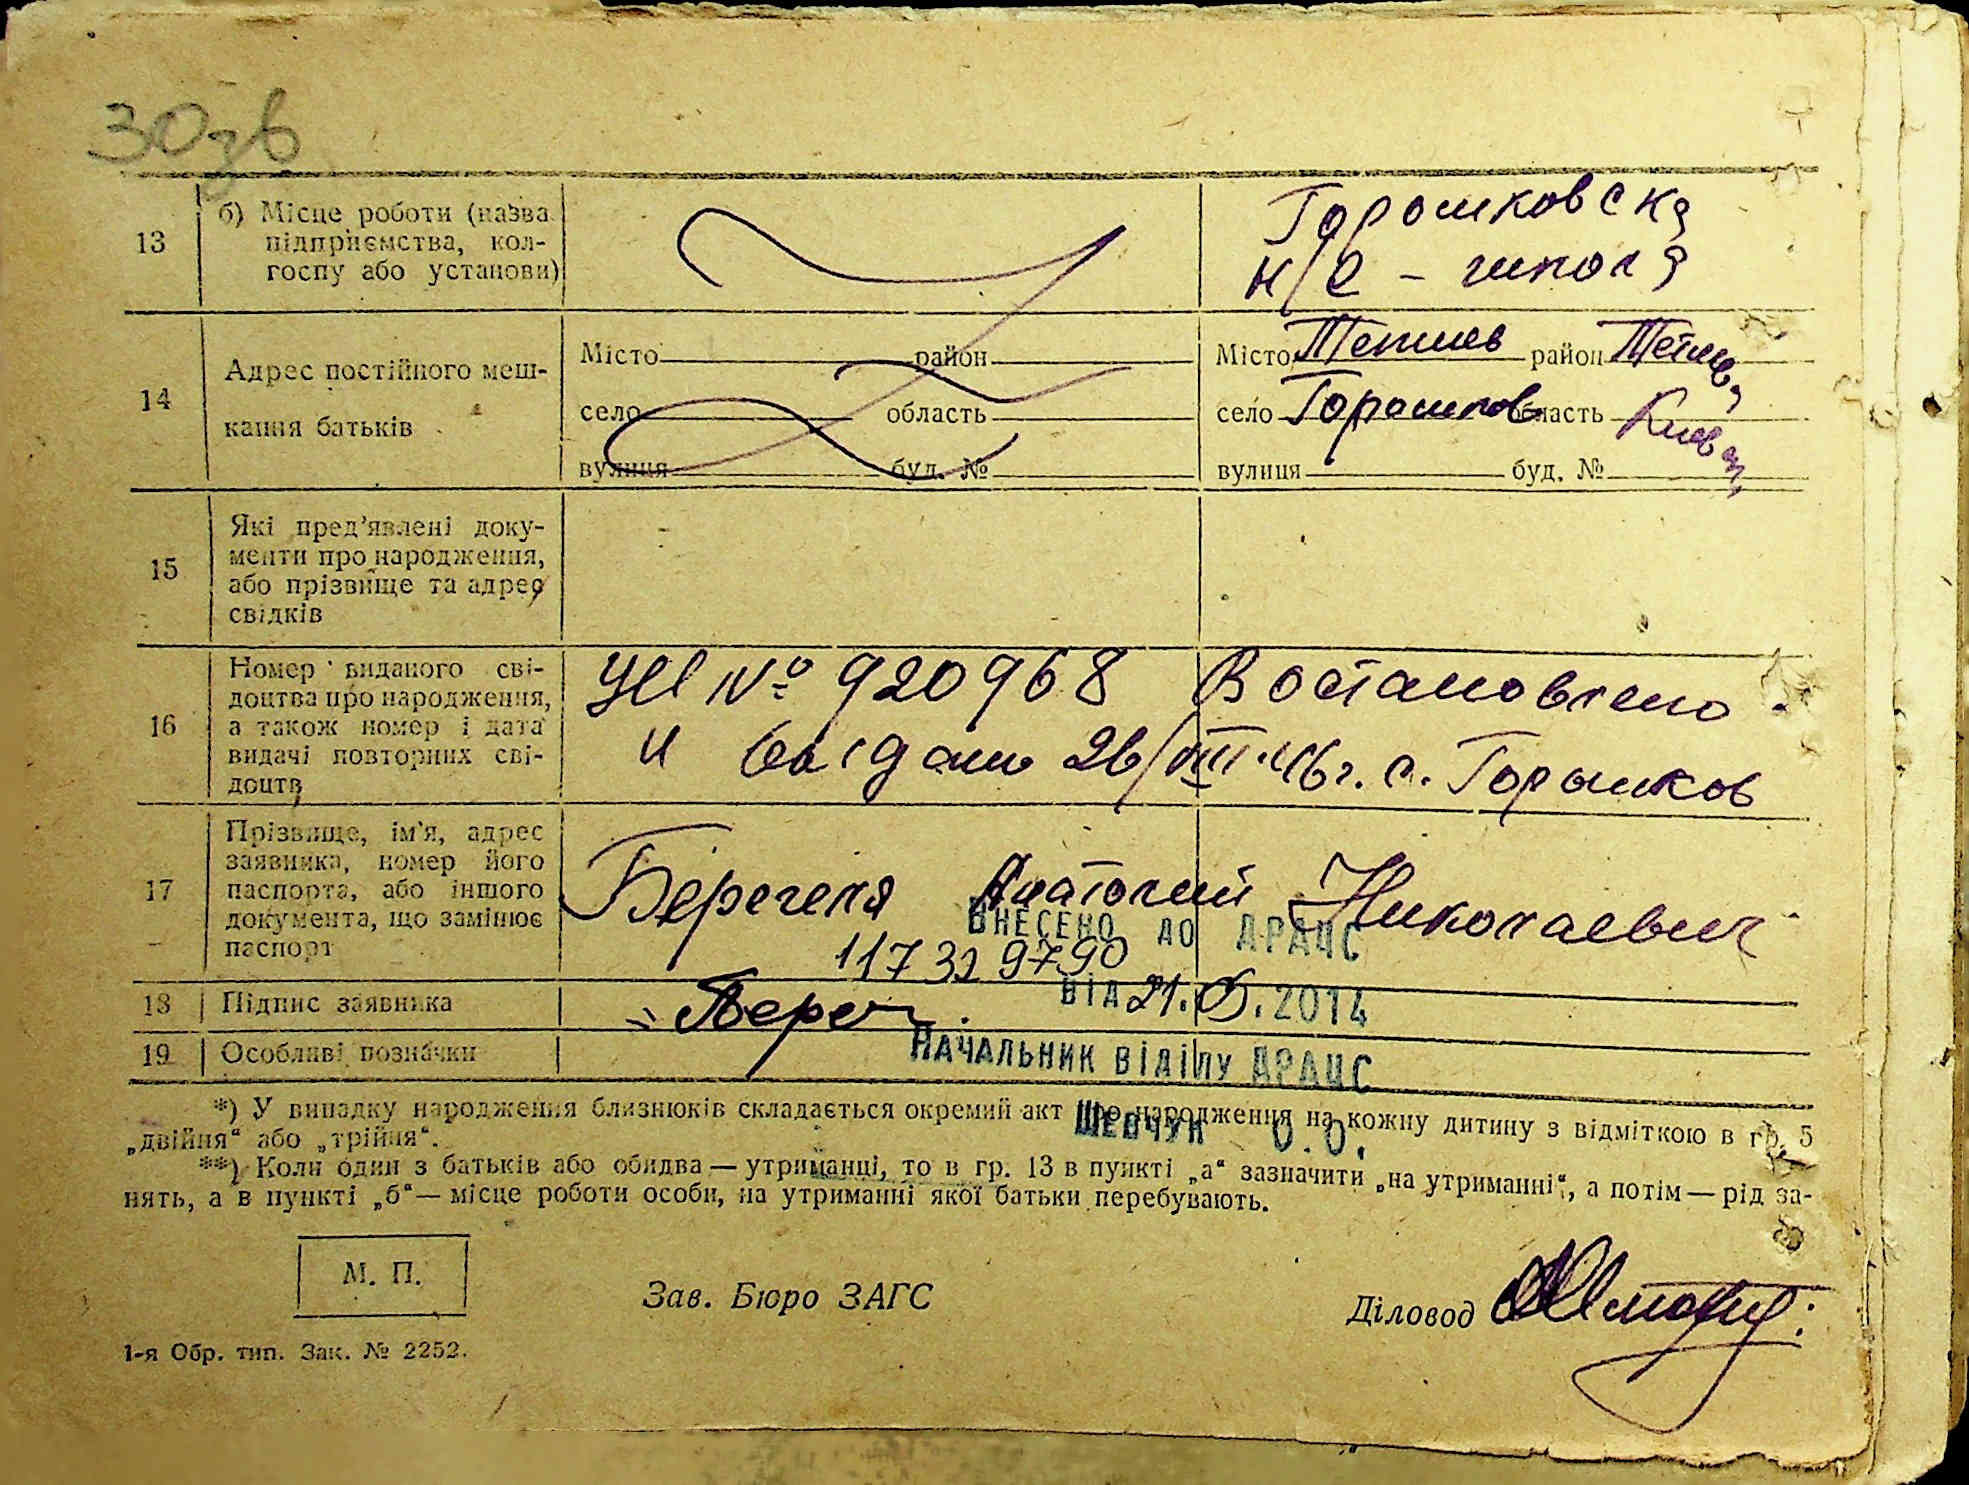 30зв
13 б) Місце роботи (назва підприємства, колгоспу або установи) Горошковска
н/с - школа
14 Адрес постійного мешкання батьків
Місто район Місто Тетиев район Тетиев
село область село Горошков область Киевск
вулиця буд. № вулиця буд. №
15 Які пред'явлені документи про народження, або прізвище та адрес свідків
16 Номер виданого свідоцтва про народження, а також номер і дата видачі повторних свідоцтв
№ 920968 Востановлено
и 26/VIII-46г. с. Горошков
17 Прізвище, ім'я, адрес заявника, номер його паспорта, або іншого документа, що замінює паспорт
Берегеля Анатолий Николаевич
ВНЕСЕНО ДО ДРАЦС
1173299790
18 Підпис заявника
ВІД 21. .2014
19 Особливі позначки
НАЧАЛЬНИК ВІДІЛУ ДРАЦС
ШЕВЧУК О.О.
*) У випадку народження близнюків складається окремий акт про народження на кожну дитину з відміткою в гр. 5
„двійня“ або „трійня“.
**) Коли один з батьків або обидва — утриманці, то в гр. 13 в пункті „а“ зазначити „на утриманні“, а потім — рід за-
нять, а в пункті „б“ — місце роботи особи, на утриманні якої батьки перебувають.
М. П.
Зав. Бюро ЗАГС
Діловод
1-я Обр. тип. Зак. № 2252.